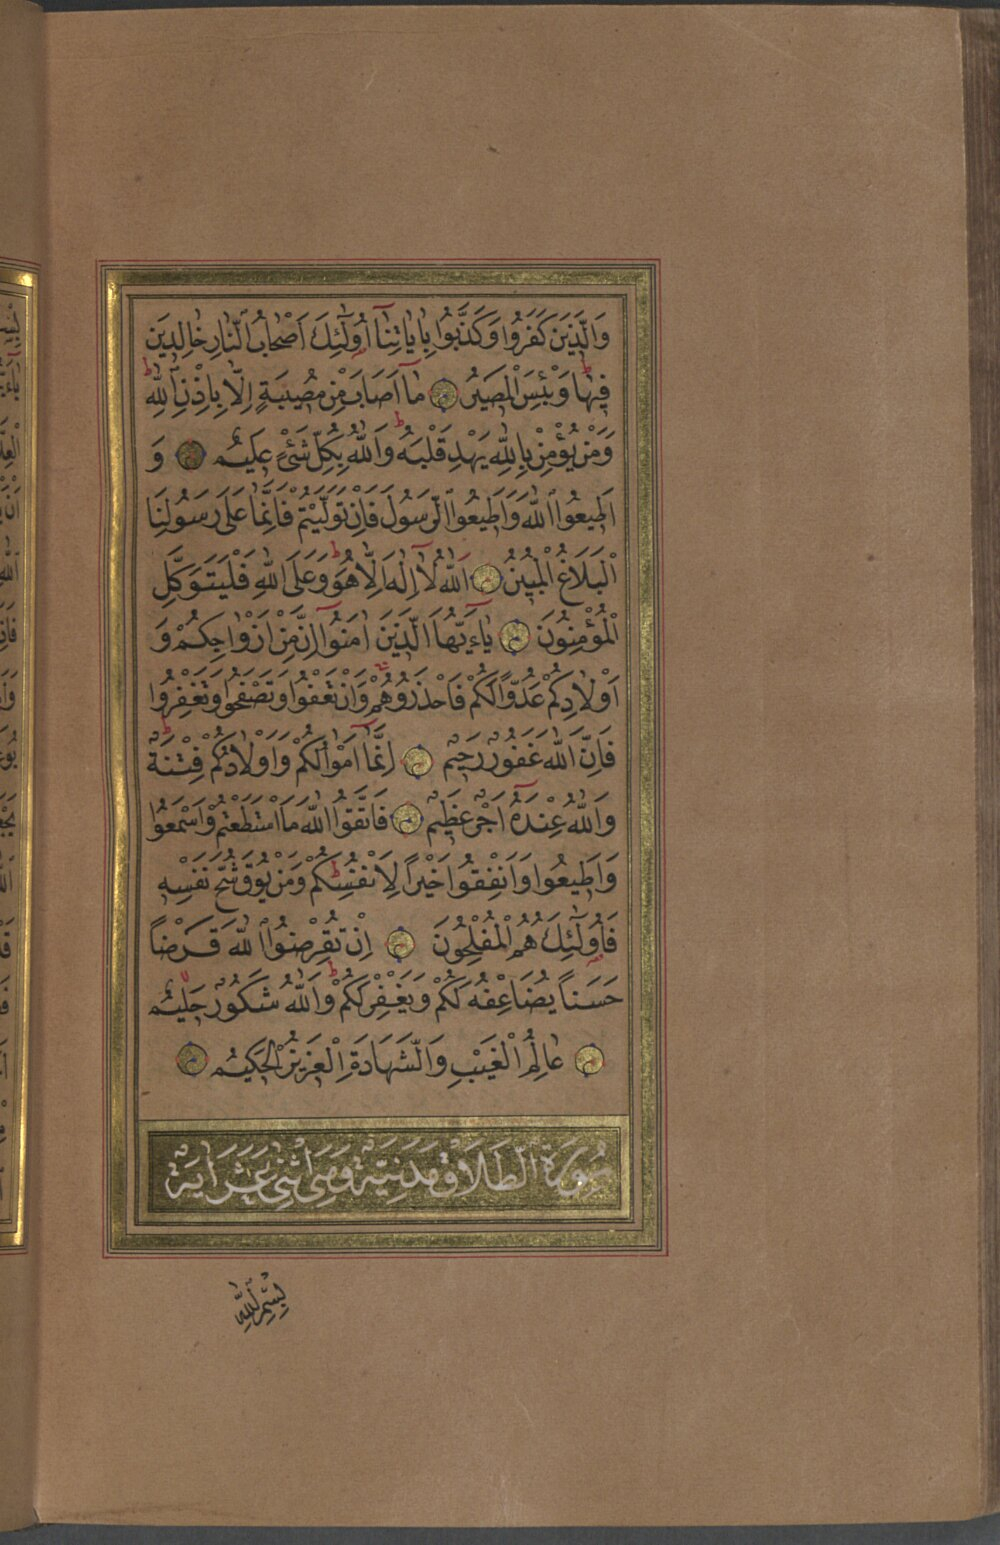 وَالَّذِينَ كَفَرُوا وَكَذَّبُوا بِاٰيَاتِنَٓا اُولٰٓئِكَ اَصْحَابُ النَّارِ خَالِدِينَ
فِيهَا وَبِئْسَ الْمَصِيرُ ۝ مَٓا اَصَابَ مِنْ مُصِيبَةٍ اِلَّا بِاِذْنِ اللّٰهِ
وَمَنْ يُؤْمِنْ بِاللّٰهِ يَهْدِ قَلْبَهُ وَاللّٰهُ بِكُلِّ شَيْءٍ عَلِيمٌ ۝ وَ
اَطِيعُوا اللّٰهَ وَاَطِيعُوا الرَّسُولَ فَاِنْ تَوَلَّيْتُمْ فَاِنَّمَا عَلٰى رَسُولِنَا
الْبَلَاغُ الْمُبِينُ ۝ اَللّٰهُ لَٓا اِلٰهَ اِلَّا هُوَ وَعَلَى اللّٰهِ فَلْيَتَوَكَّلِ
الْمُؤْمِنُونَ ۝ يَٓا اَيُّهَا الَّذِينَ اٰمَنُٓوا اِنَّ مِنْ اَزْوَاجِكُمْ وَ
اَوْلَادِكُمْ عَدُوًّا لَكُمْ فَاحْذَرُوهُمْ وَاِنْ تَعْفُوا وَتَصْفَحُوا وَتَغْفِرُوا
فَاِنَّ اللّٰهَ غَفُورٌ رَحِيمٌ ۝ اِنَّمَٓا اَمْوَالُكُمْ وَاَوْلَادُكُمْ فِتْنَةٌ
وَاللّٰهُ عِنْدَهُٓ اَجْرٌ عَظِيمٌ ۝ فَاتَّقُوا اللّٰهَ مَا اسْتَطَعْتُمْ وَاسْمَعُوا
وَاَطِيعُوا وَاَنْفِقُوا خَيْرًا لِاَنْفُسِكُمْ وَمَنْ يُوقَ شُحَّ نَفْسِهِ
فَاُولٰٓئِكَ هُمُ الْمُفْلِحُونَ ۝ اِنْ تُقْرِضُوا اللّٰهَ قَرْضًا
حَسَنًا يُضَاعِفْهُ لَكُمْ وَيَغْفِرْ لَكُمْ وَاللّٰهُ شَكُورٌ حَلِيمٌ
۝ عَالِمُ الْغَيْبِ وَالشَّهَادَةِ الْعَزِيزُ الْحَكِيمُ ۝
سُورَةُ الطَّلَاقِ مَدَنِيَّةٌ وَهِيَ اثْنَى عَشَرَ اٰيَةً
بِسْمِ اللّٰهِ